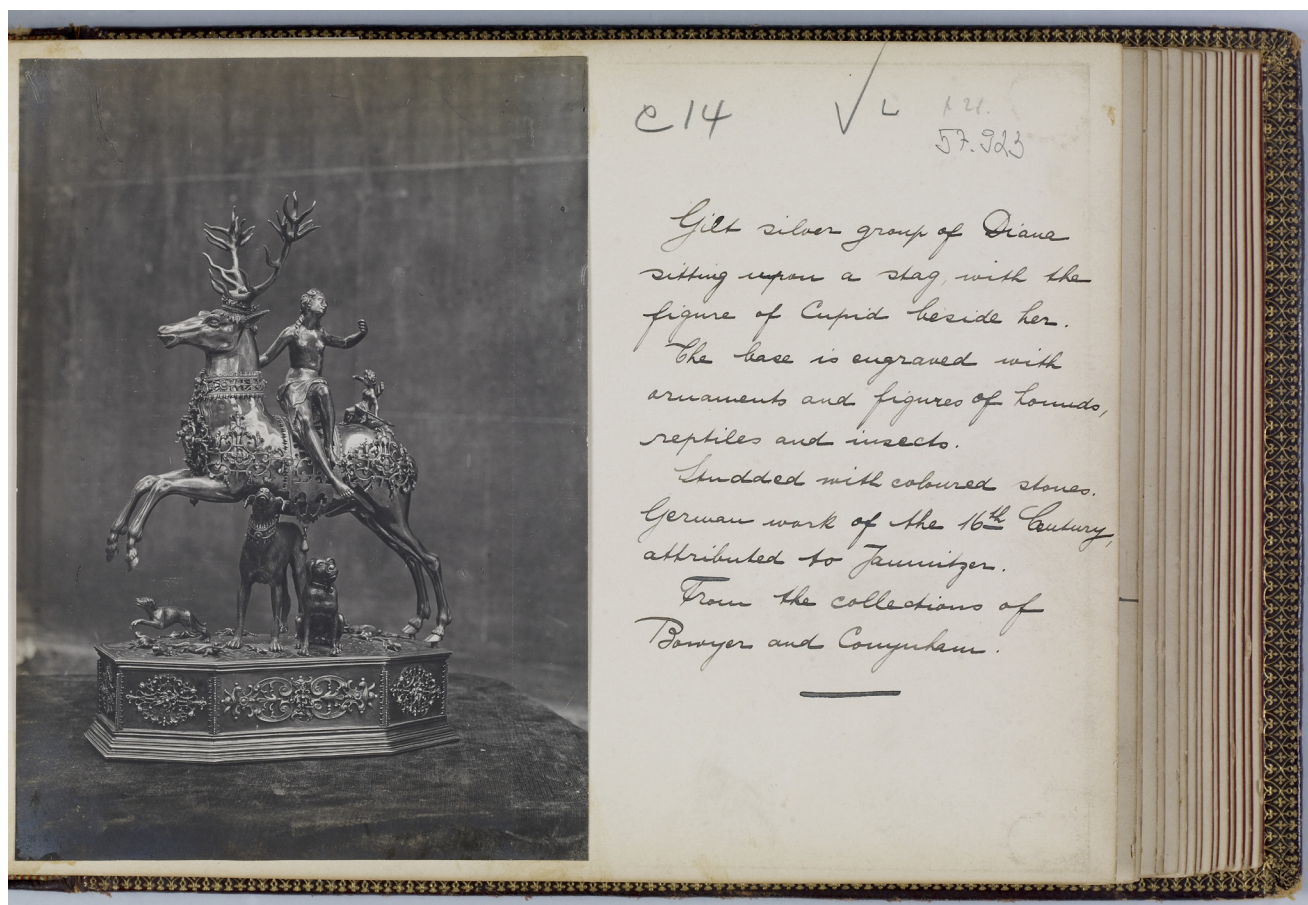 C 14 √ L
57.923
Gilt silver group of Diana
sitting upon a stag, with the
figure of Cupid beside her.
The base is engraved with
ornaments and figures of hounds,
reptiles and insects.
Studded with coloured stones.
German work of the 16th Century,
attributed to Jamnitzer.
From the collections of
Bowyer and Comynham.